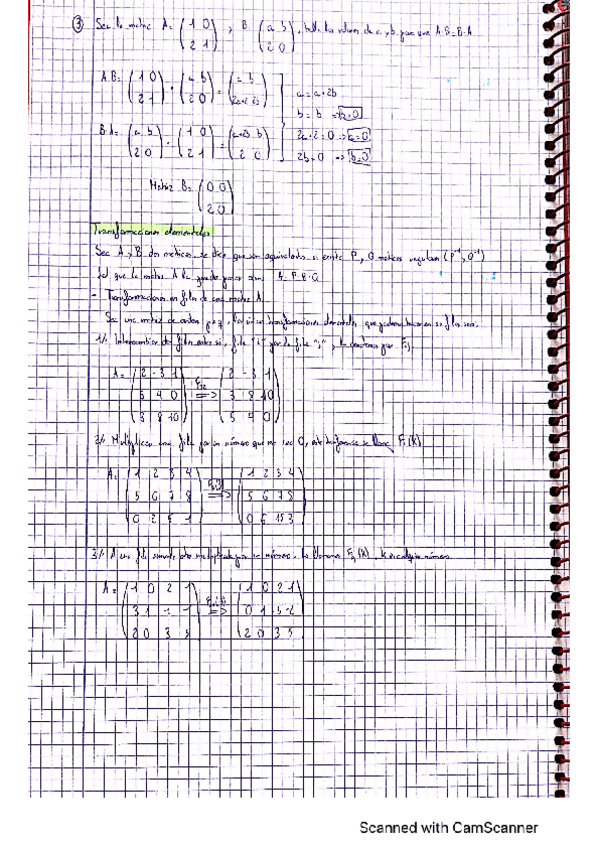 ③ Sea la matriz A = (1 0 / 2 1) , B (a b / 2 0) , halla los valores de a y b para que A·B=B·A.
A·B= (1 0 / 2 1) · (a b / 2 0) = (a b / 2a+2 2b) a = a+2b
b = b ⇒ a=0
B·A= (a b / 2 0) · (1 0 / 2 1) = (a+2b b / 2 0) 2a+2=0 ⇒ a=0
2b=0 ⇒ b=0
Matriz B= (0 0 / 2 0)
Transformaciones elementales
Sea A y B dos matrices se dice que son equivalentes si existe P, Q matrices regulares (P⁻¹, Q⁻¹)
tal que la matriz A la puedo poner como A=P·B·Q
- Transformaciones en filas de una matriz A.
Sea una matriz de orden pxq, las transformaciones elementales que podemos hacer en sus filas son:
1/. Intercambiar dos filas entre si, fila "i" por la fila "j",
A = (2 -3 1 / 5 4 0 / 3 8 10) F₃₂ ⇒ (2 -3 1 / 3 8 10 / 5 4 0)
2/. Multiplicar una fila por un número que no sea 0, se llama Fᵢ(K)
A= (1 2 3 4 / 5 6 7 8 / 0 2 5 1) ⇒ (1 2 3 4 / 5 6 7 8 / 0 6 15 3)
3/. A una fila sumarle otra multiplicada por un número, lo llamamos Fᵢⱼ(K), K es cualquier número.
A = (1 0 2 1 / 3 1 1 1 / 2 0 3 5) ⇒ (1 0 2 1 / 0 1 -5 -2 / 2 0 3 5)
Scanned with CamScanner